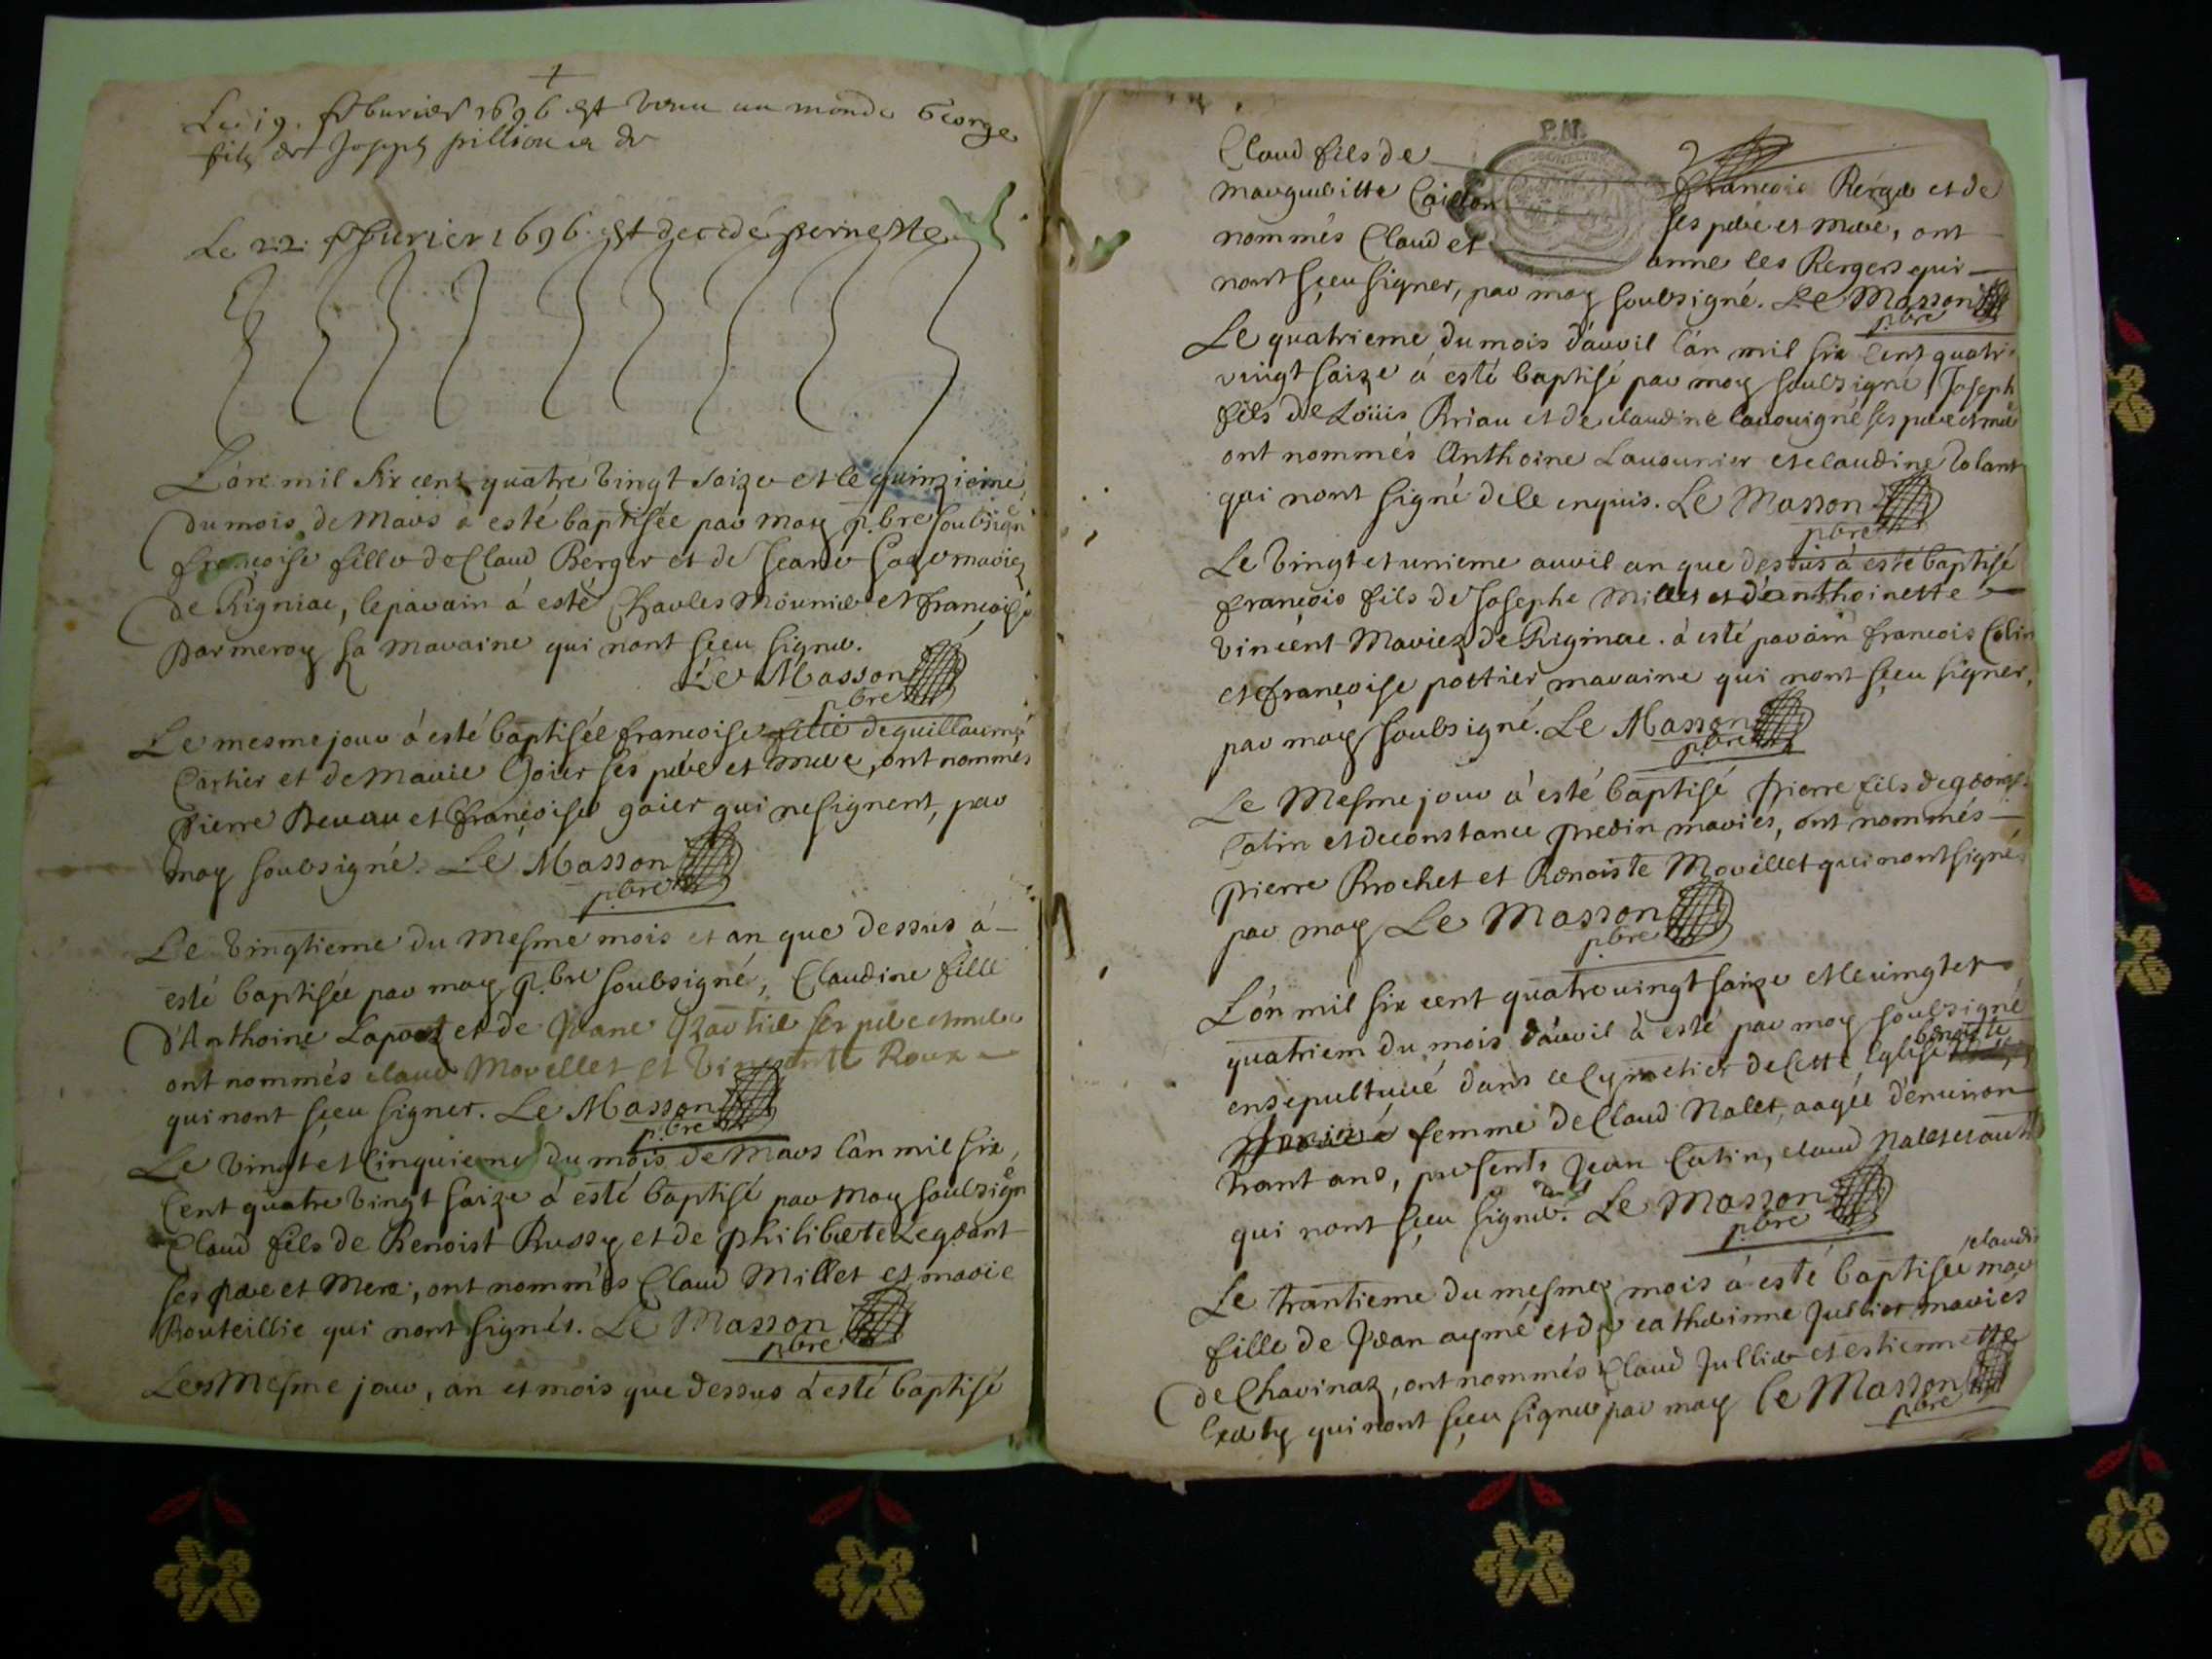 Le 19. feburier 1696 est venu au monde George
fils de Joseph pillion et de
Le 22 feburier 1696. est decedé pernette
L'an mil six cent quatre vingt saize et le quinzieme
du mois de Mars à esté baptisée par moy p.bre soubsigné
françoise fille de Claud Berger et de Jeane mariez
de Rigniac, le parain à esté Charles Mounier et françoise
parmeroy sa maraine qui nont sçeu signer.
Le Masson
p.bre
Le mesme jour à esté baptisée francoise fille de guillaume
Cartier et de Marie Goier ses pere et mere, ont nommés
pierre Beuau et françoise goier qui ne signent, par
moy soubsigné. Le Masson
p.bre
Le vingtieme du mesme mois et an que dessus à
esté baptisée par moy p.bre soubsigné, Claudine fille
d'Anthoine et de Jeane ses pere et mere
ont nommés claud Morellet et Roux
qui nont sçeu signer. Le Masson
p.bre
Le vingt et Cinquieme du mois de Mars l'an mil six
Cent quatre vingt saize à esté baptisé par Moy soubsigné
Claud fils de Benoist Bussy et de philiberte Legrant
ses pere et Mere, ont nommés Claud Millet et marie
Bouteillie qui nont signés. Le Masson
p.bre
Le Mesme jour, an et mois que dessus à esté baptisé
P.N.
Claud fils de francois Berger et de
margueritte Caillon ses pere et mere, ont
nommés Claud et anne les Bergers qui
nont sçeu signer, par moy soubsigné. Le Masson
p.bre
Le quatrieme du mois d'avril l'an mil six Cent quatre
vingt saize à esté baptisé par moy soubsigné Joseph
fils de Loüis Briau et de claudine lavouigne ses pere et mere
ont nommés Anthoine Lavounier et claudine Volant
qui nont signé de le enquis. Le Masson
p.bre
Le vingt et unieme avril an que dessus à esté baptisé
françois fils de Josephe Millet et d'anthoinette
vincent Mariez de Rigniac. à esté parain francois Colin
et françoise pottier maraine qui nont sçeu signer,
par moy soubsigné. Le Masson
p.bre
Le Mesme jour à esté baptisé pierre fils de george
Catin et de constance predin mariés, ont nommés
pierre Brochet et Benoiste Morellet qui nont signé
par moy Le Masson
p.bre
L'an mil six cent quatre vingt saize et le vingt et
quatriem du mois d'avril à esté par moy soubsigné
ensepulturé dans le Cymetier de cette Eglise benoiste
femme de Claud Nalet, aagée d'environ
trant ans, presents Jean Catin, claud Nalet et aut
qui nont sçeu signer. Le Masson
p.bre
Le trantieme du mesme mois à esté baptisée mar claudi
fille de Jean aymé et de catherinne Jullier mariés
de Chavinaz, ont nommés Claud Jullier et estiennette
qui nont sçeu signer par moy le Masson
p.bre